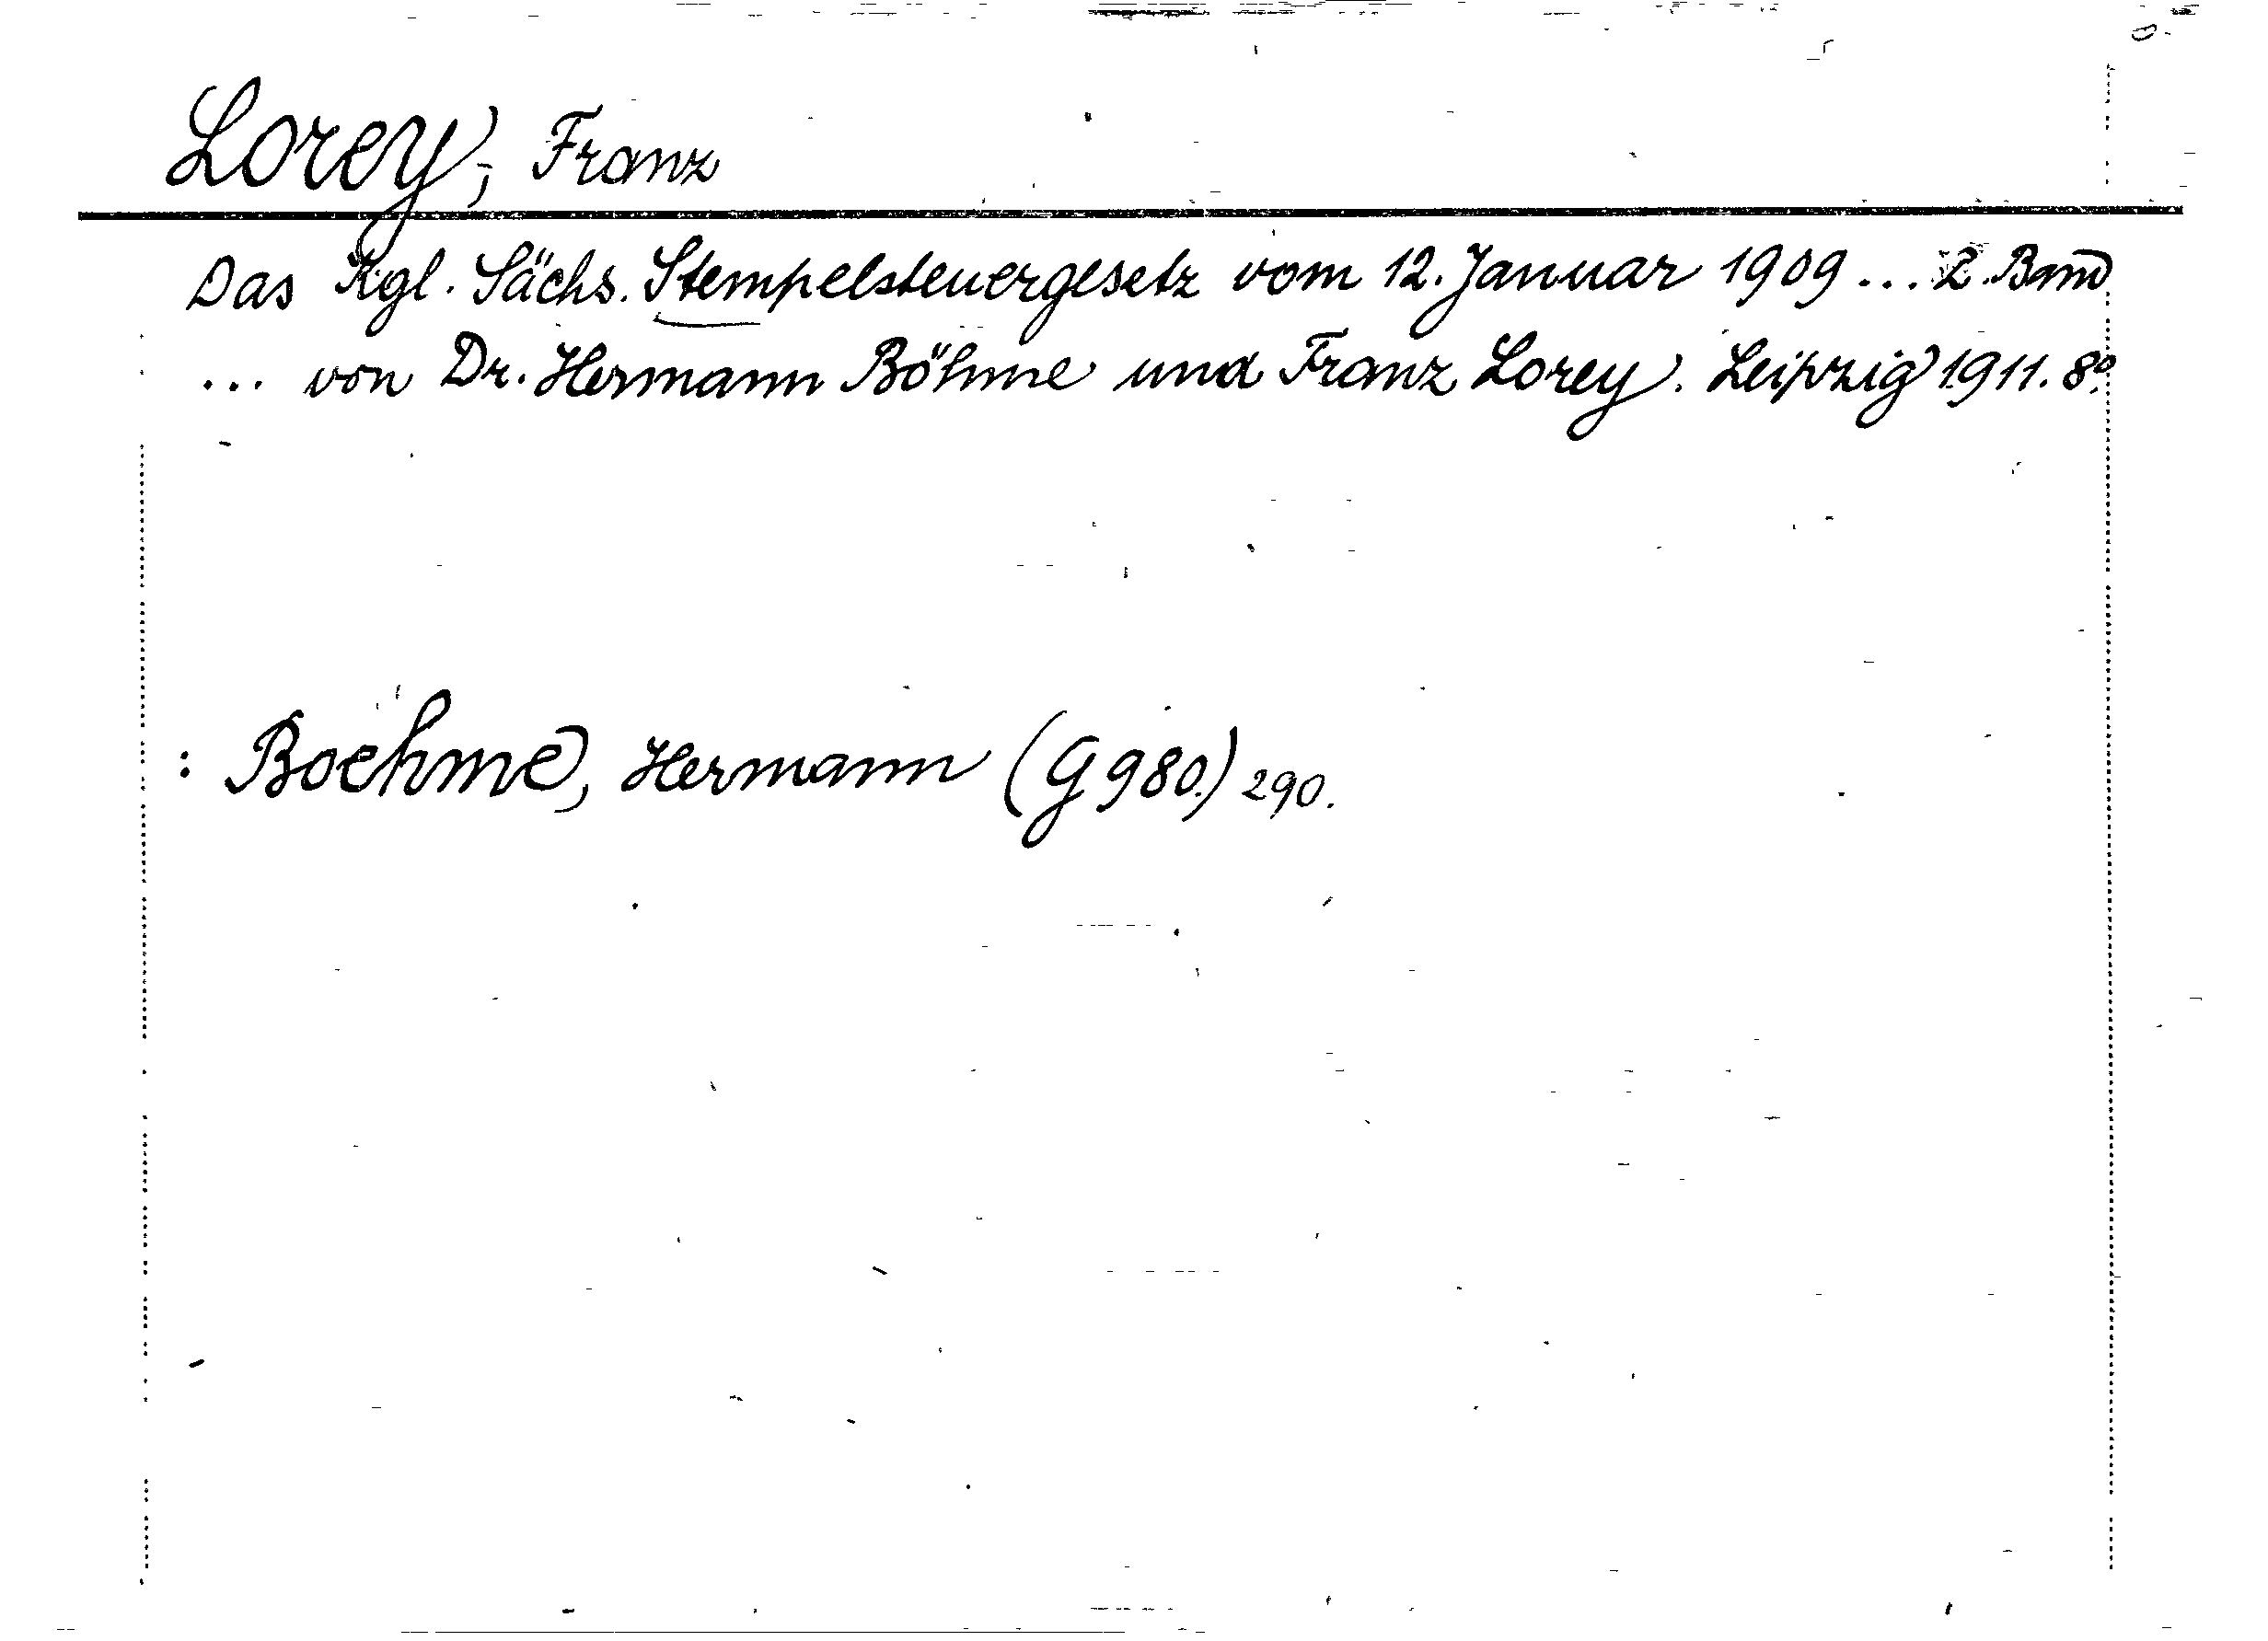 Lorey, Franz
Das Kgl. Sächs. Stempelsteuergesetz vom 12. Januar 1909 ... 2. Band
... von Dr. Hermann Böhme und Franz Lorey. Leipzig 1911. 8º.
: Boehme, Hermann (G 980.) 290.